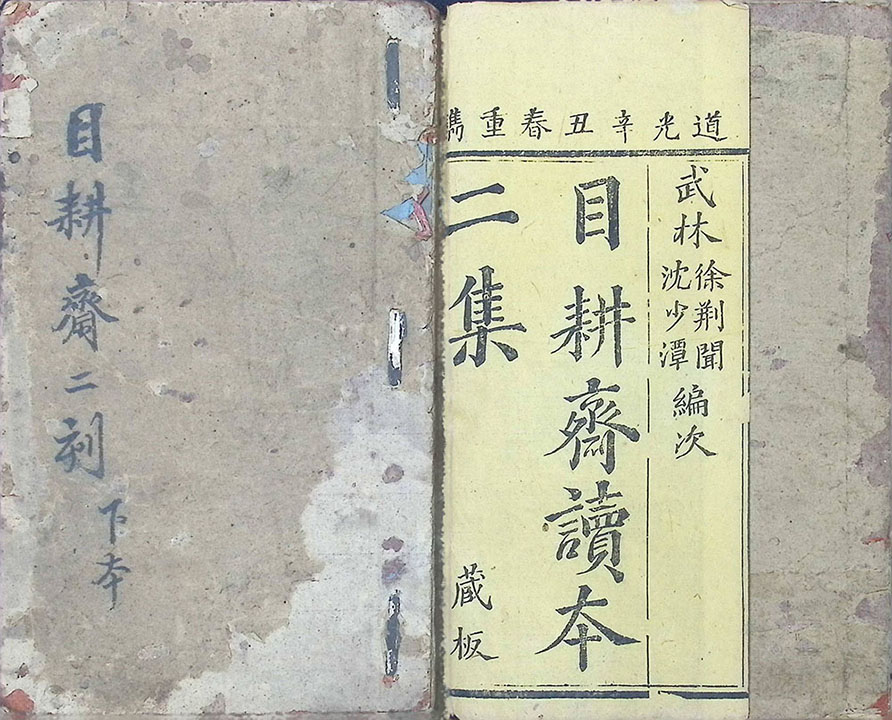 道光辛丑春重鐫
武林徐荆聞沈少潭編次
目耕齋讀本
二集
藏板
目耕齋二刻
下本